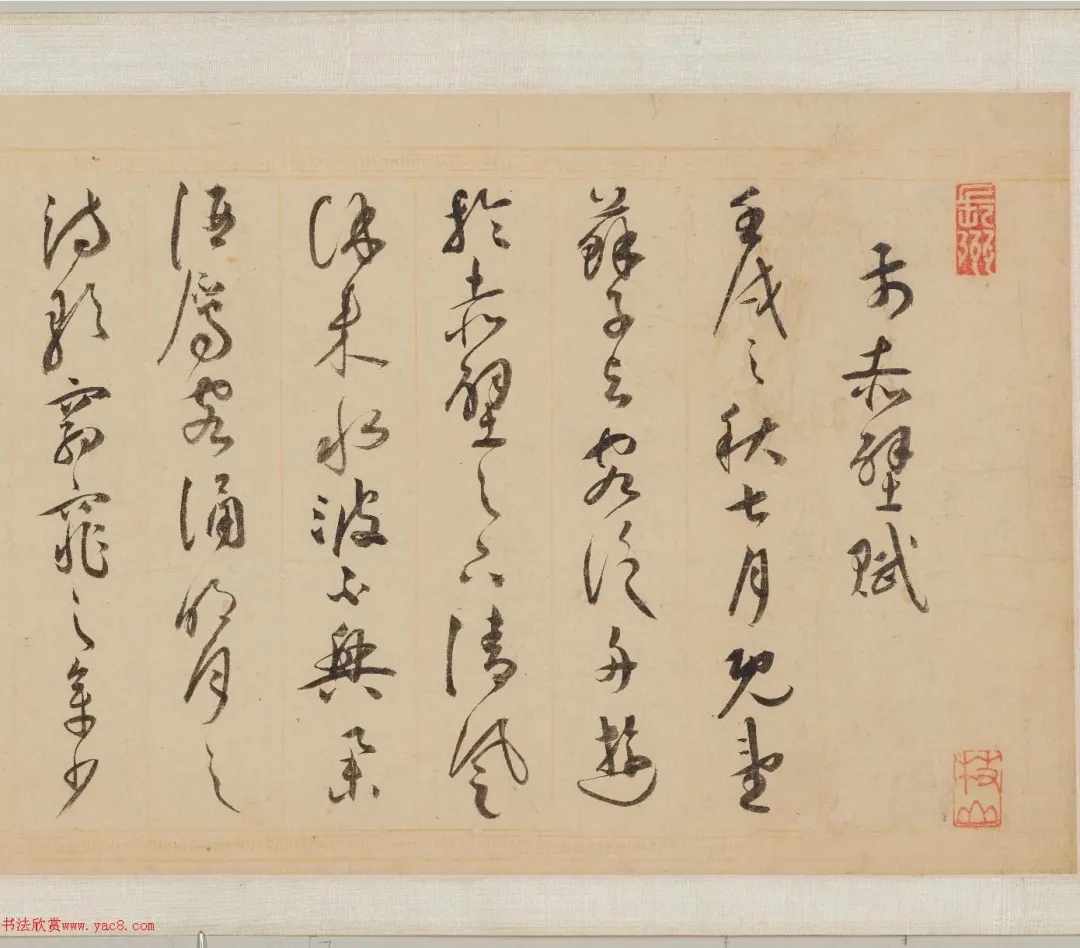 長洲
枝山
前赤壁賦
壬戌之秋七月既望
蘇子与客泛舟遊
於赤壁之下清風
徐来水波不興舉
酒屬客誦明月之
詩歌窈窕之章少
书法欣赏www.yac8.com